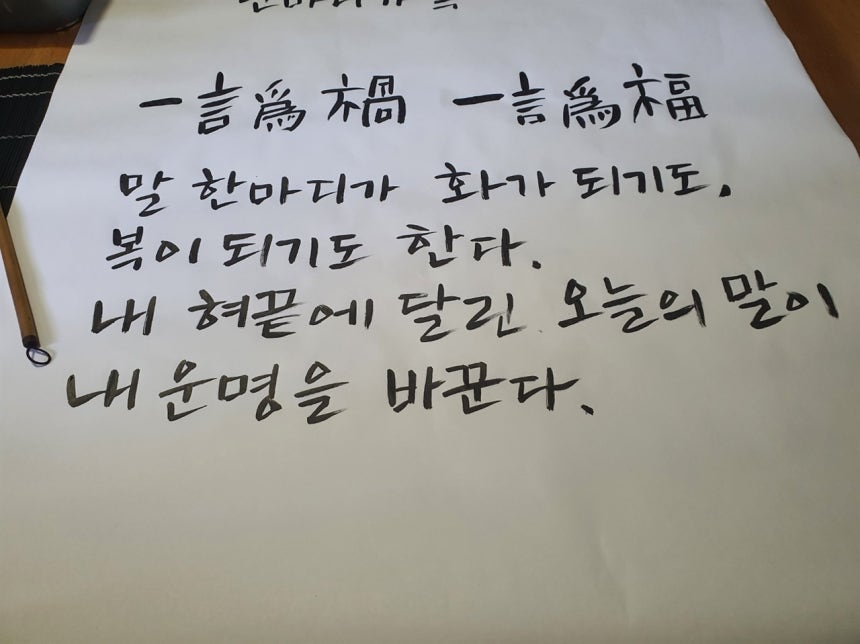 一言爲禍 一言爲福
말 한마디가 화가 되기도.
복이 되기도 한다.
내 혀끝에 달린 오늘의 말이
내 운명을 바꾼다.